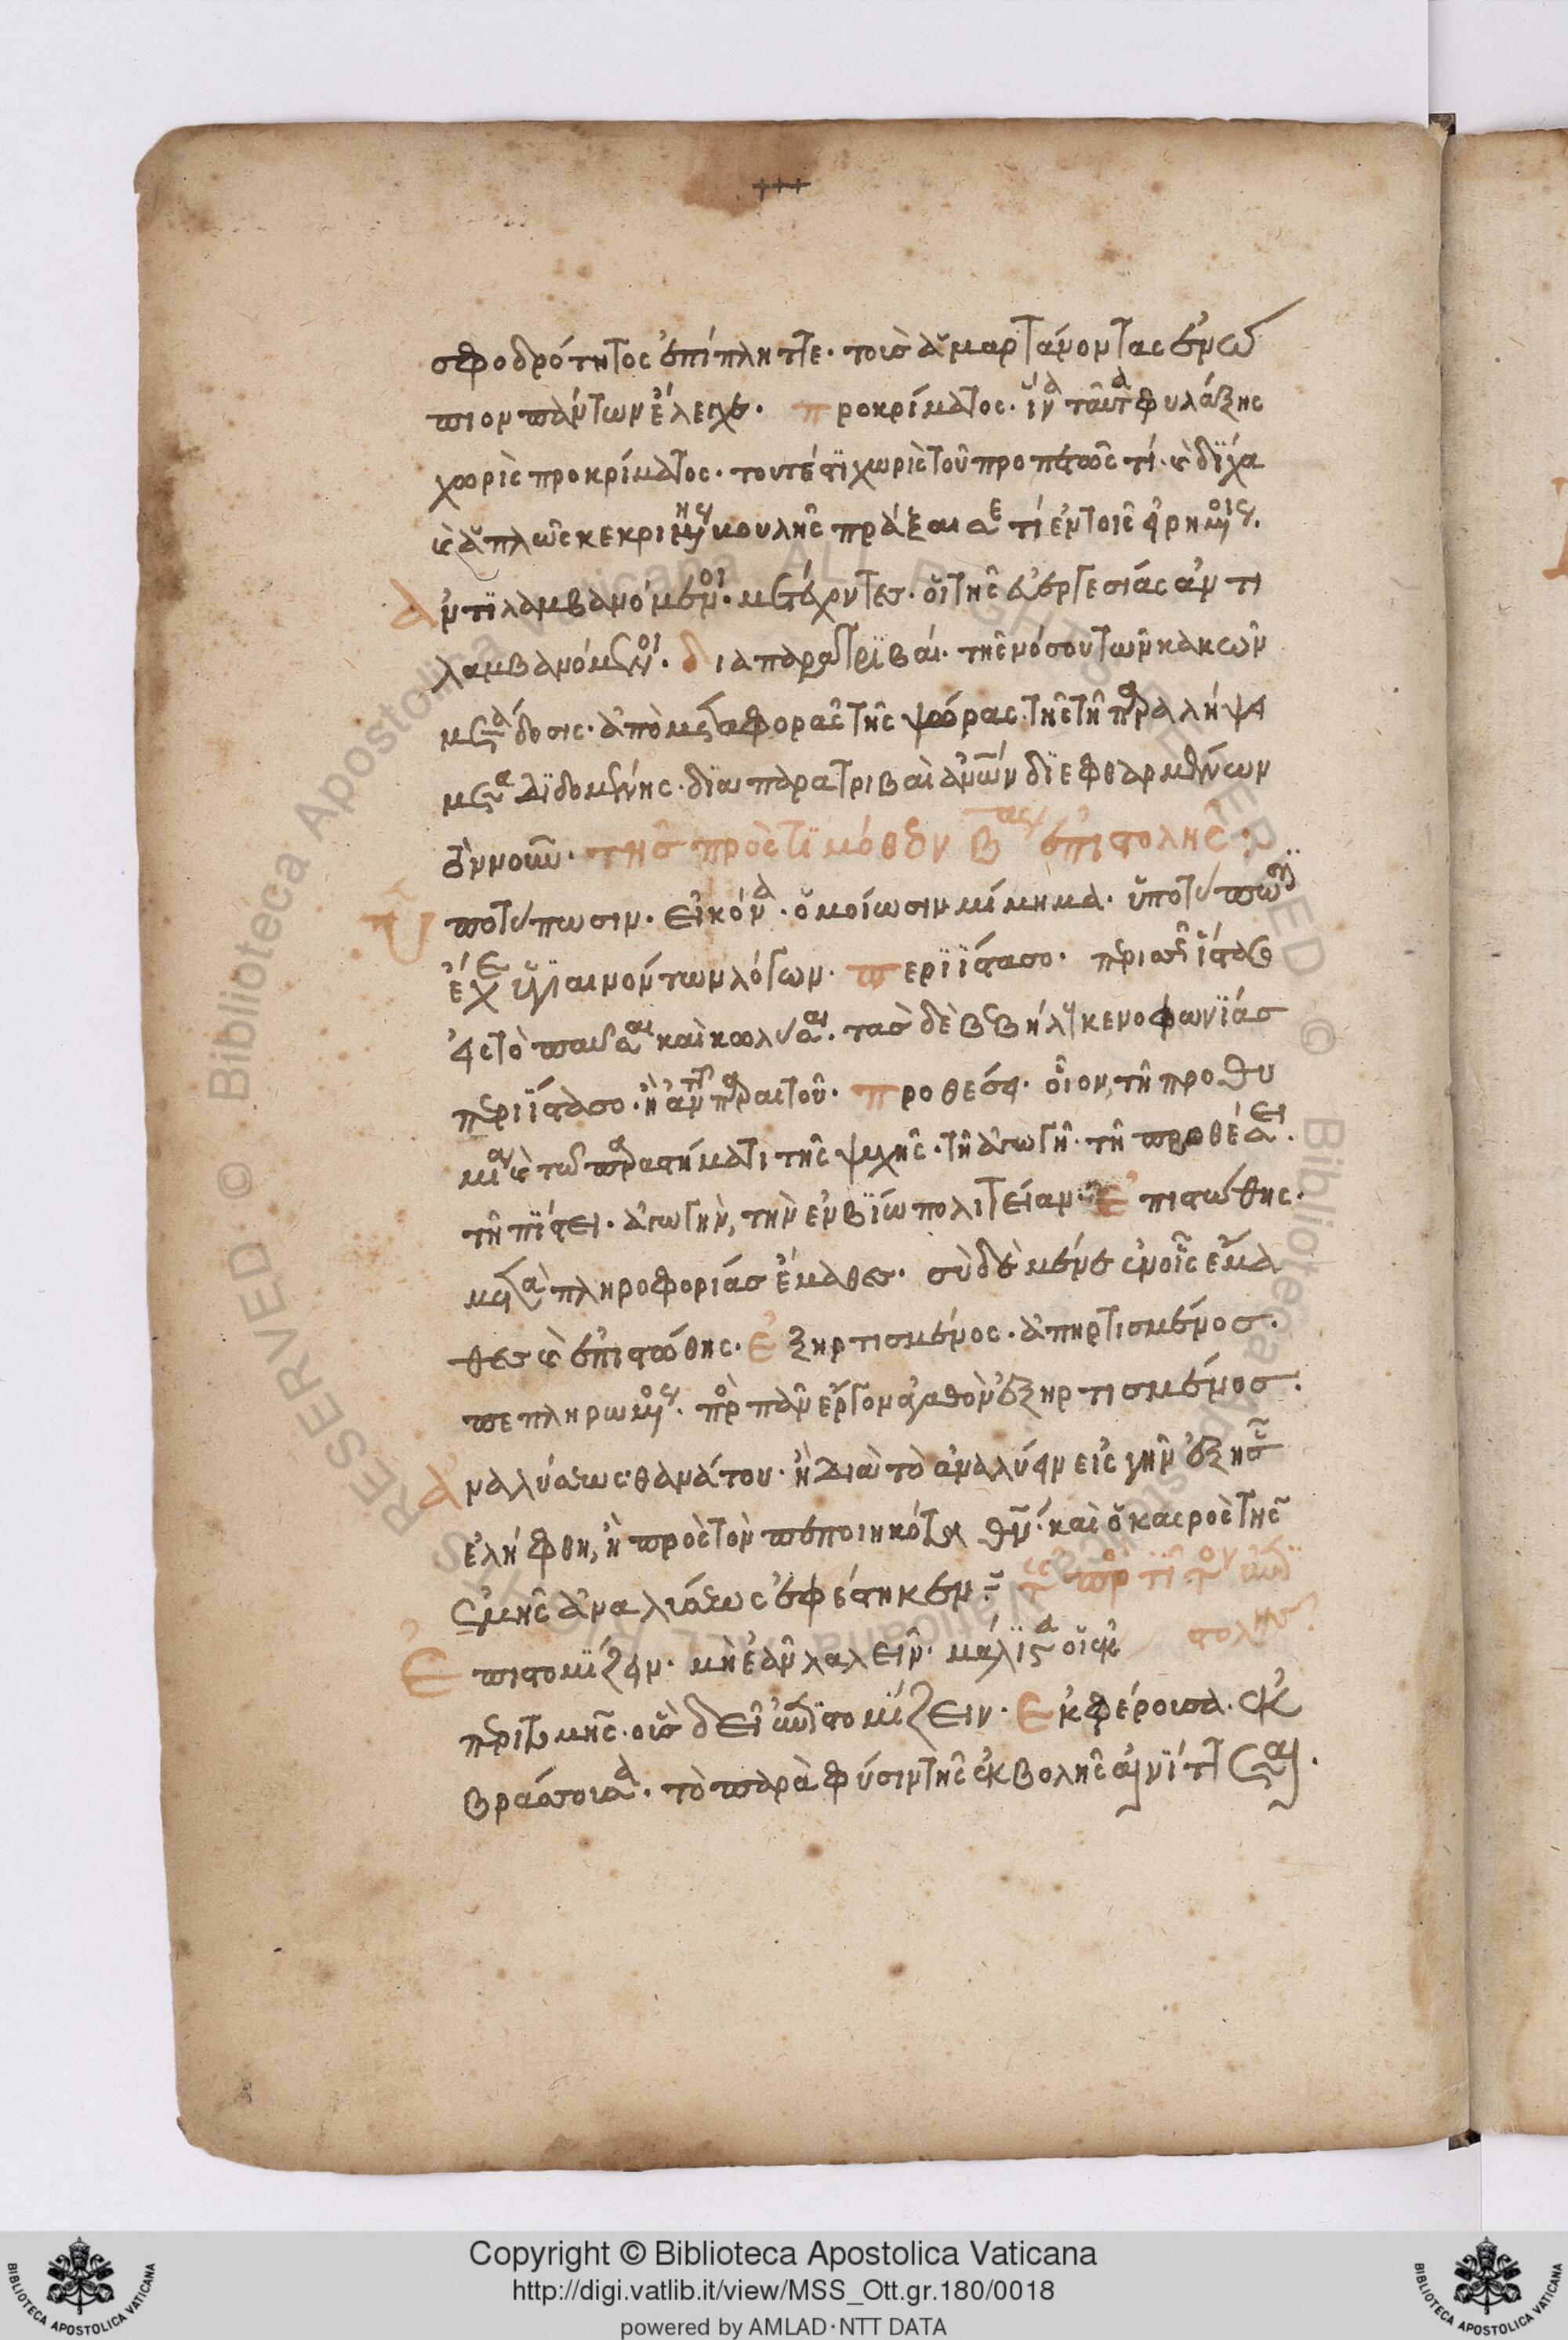 +++
σφοδρότητος ἐπίπληττε· τοὺς ἁμαρτάνοντας ἐνώ
πιον πάντων ἔλεγχε. προκρίματος. ἵνα ταῦτα φυλάξης
χωρὶς προκρίματος. τουτέστι χωρὶς τοῦ προπετῶς τί. καὶ δίχα
καὶ ἁπλῶς κεκριμένης βουλῆς πράξαι σε τί ἐν τοῖς εἰρημένοις.
Ἀντιλαμβανόμενοι. μετέχοντες. οἱ τῆς εὐεργεσίας ἀντι
λαμβανόμενοι. διαπαρατριβαί. τῆς νόσου τῶν κακῶν
μετάδοσις. ἀπὸ μεταφορᾶς τῆς ψώρας τῆς τῆ παραλήψει
μεταδιδομένης. διαπαρατριβαὶ ἀνῶν διεφθαρμένων
τὸν νοῦν. τῆς πρὸς τιμόθεον βας ἐπιστολῆς:
Ὑποτύπωσιν. εἰκόνα. ὁμοίωσιν μίμημα. ὑποτύπωσιν
ἔχε ὑγιαινόντων λόγων. περιΐστασο. περιστ ἵστασο
εἰς τὸ παῦσαι καὶ κωλῦσαι. τὰς δὲ βεβήλους κενοφωνίας
περιΐστασο. ἢ ἀντὶ παραιτοῦ. προθέσει. οἷον, τῆ προθυ
μία καὶ τῶ παραστήματι τῆς ψυχῆς. τῆ ἀγωγῆ. τῆ προθέσει.
τῆ πίστει. ἀγωγὴν, τὴν ἐν βίω πολιτείαν. Ἐπιστώθης.
μετὰ πληροφορίας ἔμαθες. σὺ δὲ μένε ἐν οἷς ἔμα
θες καὶ ἐπιστώθης. Ἐξηρτισμένος. ἀπηρτισμένος.
πεπληρωμένος. πρὸς πᾶν ἔργον ἀγαθὸν ἐξηρτισμένος.
Ἀναλύσεως θανάτου. ἢ διὰ τὸ ἀναλύειν εἰς γῆν ἐξ ἧς
ἐλήφθη, ἢ πρὸς τὸν πεποιηκότα θν. καὶ ὁ καιρὸς τῆς
ἐμῆς ἀναλύσεως ἐφέστηκεν:
Ἐπιστομίζειν. μὴ ἐᾶν λαλεῖν. μάλιστα οἱ ἐκ
περιτομῆς. οὓς δεῖ ἐπιστομίζειν. Ἐκφέρουσα. ἐκ
βράσσουσα. τὸ παρὰ φύσιν τῆς ἐκβολῆς αἰνίττεται.
Copyright © Biblioteca Apostolica Vaticana
http://digi.vatlib.it/view/MSS_Ott.gr.180/0018
powered by AMLAD·NTT DATA